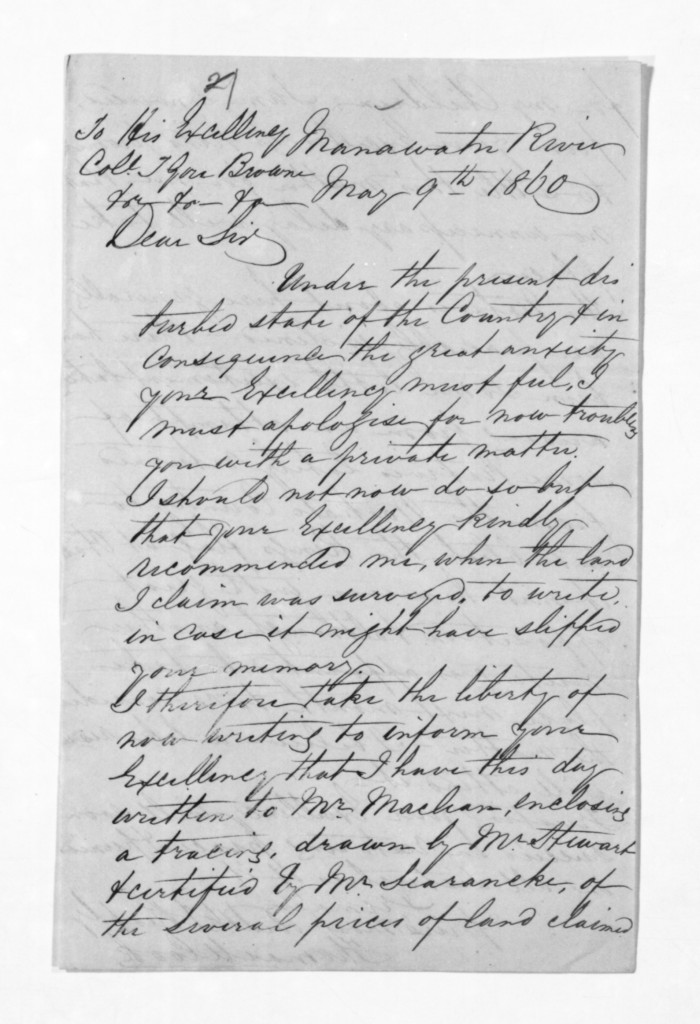 2/
To His Excellency
Coll. T Gore Browne
&c &c &c
Manawatu River
May 9th 1860
Dear Sir
Under the present dis
turbed state of the Country & in
consequence the great anxiety
your Excellency must feel, I
must apologise for now troubling
you with a private matter.
I should not now do so but
that your Excellency kindly
recommended me, when the land
I claim was surveyed, to write,
in case it might have slipped
your memory.
I therefore take the liberty of
now writing to inform your
Excellency that I have this day
written to Mr. Maclean, enclosing
a tracing, drawn by Mr. Stewart
& certified by Mr. Searancke, of
the several pieces of land claimed